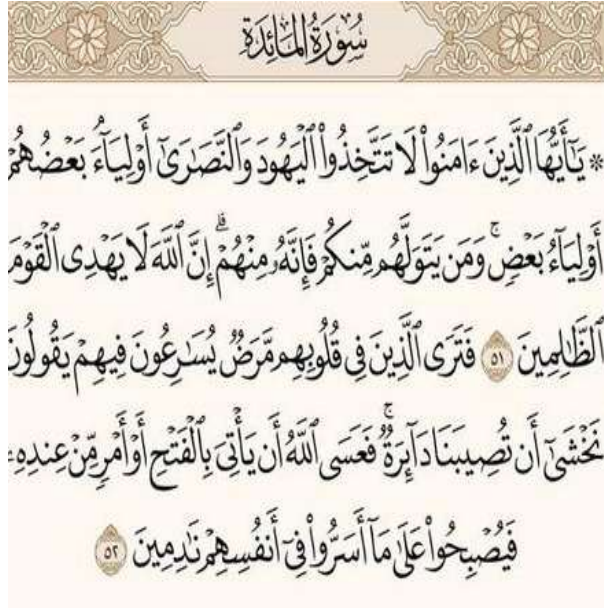 سُورَةُ المَائِدَةِ
* يَٰٓأَيُّهَا ٱلَّذِينَ ءَامَنُواْ لَا تَتَّخِذُواْ ٱلۡيَهُودَ وَٱلنَّصَٰرَىٰٓ أَوۡلِيَآءَۘ بَعۡضُهُمۡ
أَوۡلِيَآءُ بَعۡضٖۚ وَمَن يَتَوَلَّهُم مِّنكُمۡ فَإِنَّهُۥ مِنۡهُمۡۗ إِنَّ ٱللَّهَ لَا يَهۡدِي ٱلۡقَوۡمَ
ٱلظَّٰلِمِينَ ٥١ فَتَرَى ٱلَّذِينَ فِي قُلُوبِهِم مَّرَضٞ يُسَٰرِعُونَ فِيهِمۡ يَقُولُونَ
نَخۡشَىٰٓ أَن تُصِيبَنَا دَآئِرَةٞۚ فَعَسَى ٱللَّهُ أَن يَأۡتِيَ بِٱلۡفَتۡحِ أَوۡ أَمۡرٖ مِّنۡ عِندِهِۦ
فَيُصۡبِحُواْ عَلَىٰ مَآ أَسَرُّواْ فِيٓ أَنفُسِهِمۡ نَٰدِمِينَ ٥٢